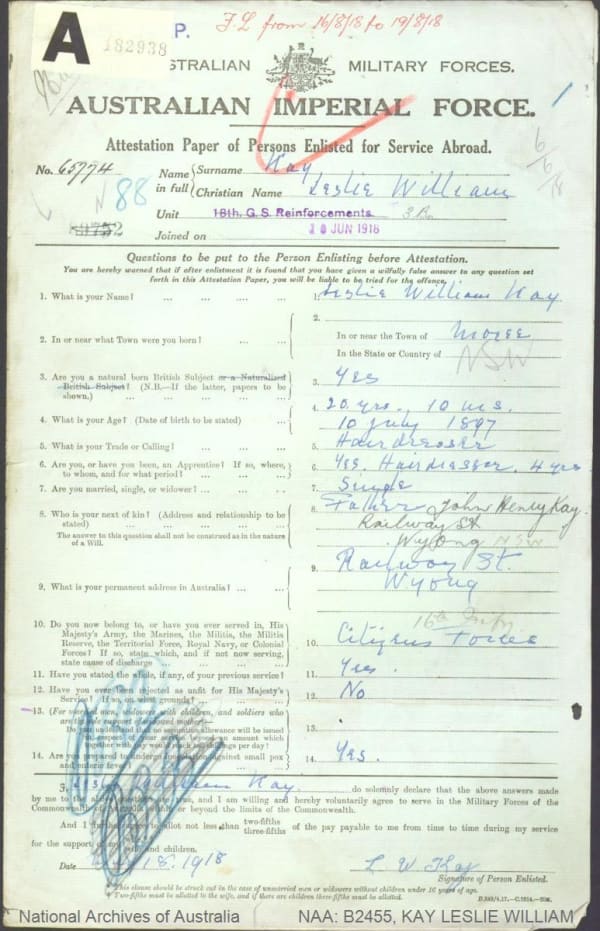 A
182938
P.
F.L from 16/8/18 to 19/8/18
STRALIAN MILITARY FORCES.
AUSTRALIAN IMPERIAL FORCE.
Attestation Paper of Persons Enlisted for Service Abroad.
6/6/18
No. 65774
Name in full { Surname Kay
Christian Name Leslie William
N 88
Unit 18th. G. S. Reinforcements.
Joined on JUN 1918
Questions to be put to the Person Enlisting before Attestation.
You are hereby warned that if after enlistment it is found that you have given a wilfully false answer to any question set
forth in this Attestation Paper, you will be liable to be tried for the offence.
1. What is your Name? ... ... ... ... 1. Leslie William Kay
2. In or near what Town were you born? ... ... 2. In or near the Town of Moree
In the State or Country of NSW
3. Are you a natural born British Subject or a Naturalized
British Subject? (N.B.—If the latter, papers to be
shown.) 3. Yes
4. What is your Age? (Date of birth to be stated) ... 4. 20 yrs., 10 ms.
10 July 1897
5. What is your Trade or Calling? ... ... ... 5. Hairdresser
6. Are you, or have you been, an Apprentice? If so, where,
to whom, and for what period? ... ... ... 6. Yes. Hairdresser. 4 yrs
7. Are you married, single, or widower? ... ... ... 7. Single
8. Who is your next of kin? (Address and relationship to be
stated) ... ... ... ... 8. Father John Henry Kay.
Railway St
Wyong NSW
The answer to this question shall not be construed as in the nature
of a Will.
9. What is your permanent address in Australia? ... ... 9. Railway St.
Wyong
16th Infy
10. Do you now belong to, or have you ever served in, His
Majesty's Army, the Marines, the Militia, the Militia
Reserve, the Territorial Force, Royal Navy, or Colonial
Forces? If so, state which, and if not now serving,
state cause of discharge 10. Citizens Forces
11. Have you stated the whole, if any, of your previous service? 11. Yes.
12. Have you ever been rejected as unfit for His Majesty's
Service? If so, on what grounds? 12. No
13. (For married men, widowers with children, and soldiers who
are the sole support of widowed mother—
Do you understand that no separation allowance will be issued
together with pay would exceed shillings per day? 13.
14. Are you prepared to undergo inoculation against small pox
and enteric fever? 14. Yes.
I, Leslie William Kay. do solemnly declare that the above answers made
by me to the above questions are true, and I am willing and hereby voluntarily agree to serve in the Military Forces of the
Commonwealth of Australia within or beyond the limits of the Commonwealth.
And I further agree to allot not less than two-fifths three-fifths of the pay payable to me from time to time during my service
for the support of my wife and children.
Date 1918
L W Kay
Signature of Person Enlisted.
* This clause should be struck out in the case of unmarried men or widowers without children under 16 years of age.
† Two-fifths must be allotted to the wife, and if there are children three-fifths must be allotted.
National Archives of Australia
NAA: B2455, KAY LESLIE WILLIAM